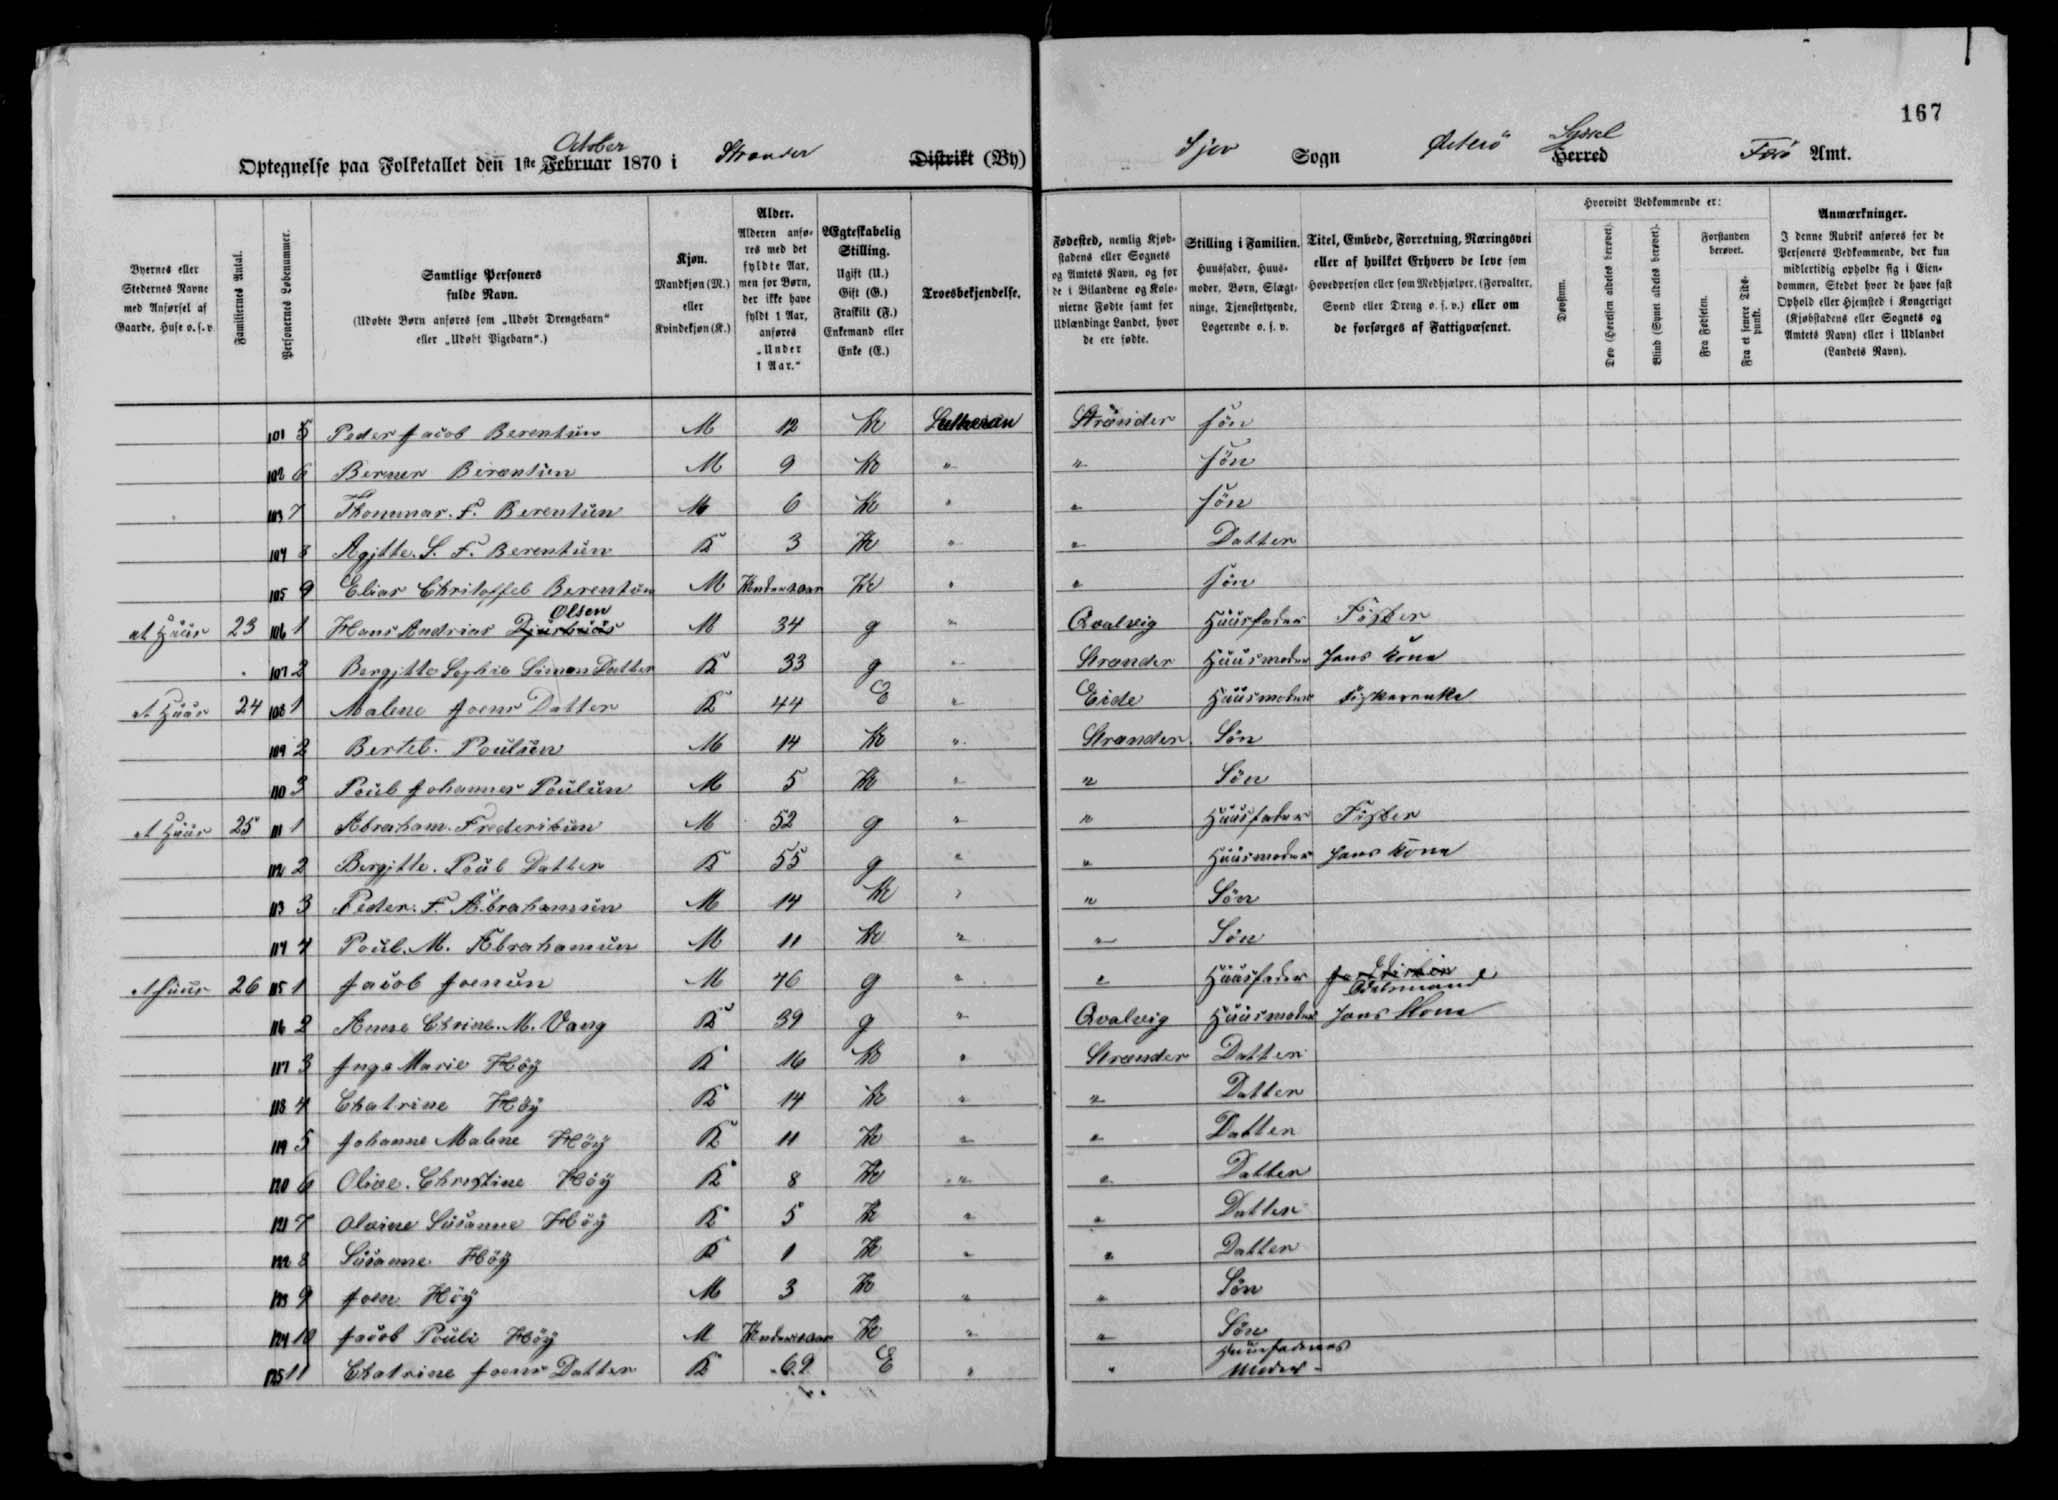 167
October
Optegnelse paa Folketallet den 1ste Februar 1870 i Strænder Distrikt (By)
Sjov Sogn Österö Herred Sÿssel Færö Amt.
Byernes eller Stedernes Navne med Anførsel af Gaarde, Huse o. s. v.
Familiernes Antal.
Personernes Løbenummer.
Samtlige Personers fulde Navn.
(Udøbte Børn anføres som „Udøbt Drengebarn“ eller „Udøbt Pigebarn“.)
Kjøn.
Mandkjøn (M.) eller Kvindekjøn (K.)
Alder.
Alderen anføres med det fyldte Aar, men for Børn, der ikke have fyldt 1 Aar, anføres „Under 1 Aar.“
Ægteskabelig Stilling.
Ugift (U.) Gift (G.) Fraskilt (F.) Enkemand eller Enke (E.)
Troesbekjendelse.
Fødested, nemlig Kjøbstadens eller Sognets og Amtets Navn, og for de i Bilandene og Kolonierne Fødte samt for Udlændinge Landet, hvor de ere fødte.
Stilling i Familien.
Huusfader, Huusmoder, Børn, Slægtninge, Tjenestetyende, Logerende o. s. v.
Titel, Embede, Forretning, Næringsvei eller af hvilket Erhverv de leve som Hovedperson eller som Medhjælper, (Forvalter, Svend eller Dreng o. s. v.) eller om de forsørges af Fattigvæsenet.
Hvorvidt Vedkommende er:
Døvstum.
Døv (Hørelsen aldeles berøvet).
Blind (Synet aldeles berøvet).
Forstanden berøvet.
Fra Fødselen.
Fra et senere Tidspunkt.
Anmærkninger.
I denne Rubrik anføres for de Personers Vedkommende, der kun midlertidig opholde sig i Eiendommen, Stedet hvor de have fast Ophold eller Hjemsted i Kongeriget (Kjøbstadens eller Sognets og Amtets Navn) eller i Udlandet (Landets Navn).
101 5 Peder Jacob Berentsen M 12 U Lutheran Strænder Søn
102 6 Berner Berentsen M 9 U " " Søn
103 7 Thommas. F. Berentsen M 6 U " " Søn
104 8 Agjtte. S. F. Berentsen K 3 U " " Datter
105 9 Elias Christoffel Berentsen M Under 1 aar U " " Søn
et Huus 23 106 1 Hans Andrias Olsen M 34 g " Qvalvig Huusfader Fisker
107 2 Bergjtte Sophie Simons Datter K 33 g " Strænder Huusmoder Hans Kone
et Huus 24 108 1 Malene Joens Datter K 44 E " Eide Huusmoder Fiskerenke
109 2 Bertel. Poulsen M 14 U " Strænder Søn
110 3 Poul Johannes Poulsen M 5 U " " Søn
et Huus 25 111 1 Abraham. Frederiksen M 52 g " " Huusfader Fisker
112 2 Bergjtte. Poul Datter K 55 g " " Huusmoder Hans Kone
113 3 Peder. F. Abrahamsen M 14 U " " Søn
114 4 Poul. M. Abrahamsen M 11 U " " Søn
et Huus 26 115 1 Jacob Joensen M 46 g " " Huusfader Odelsmand
116 2 Anne Chrine. M. Vang K 39 g " Qvalvig Huusmoder Hans Kone
117 3 Inge Marie Höÿ K 16 U " Strænder Datter
118 4 Chatrine Höÿ K 14 U " " Datter
119 5 Johanne Malene Höÿ K 11 U " " Datter
120 6 Olive. Christine Höÿ K 8 U " " Datter
121 7 Olvine Susanne Höÿ K 5 U " " Datter
122 8 Susanne Höÿ K 1 U " " Datter
123 9 Joen Höÿ M 3 U " " Søn
124 10 Jacob Pouli Höÿ M Under 1 aar U " " Søn
125 11 Chatrine Joens Datter K 69 E " " Huusfaderens Moder